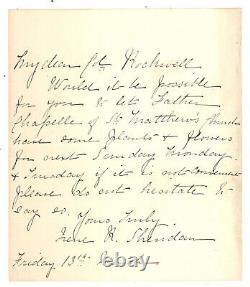 My dear Col. Rockwell
Would it be possible
for you to let Father
Chapelle of St. Matthew's Church
have some plants & flowers
for next Sunday Monday
& Tuesday if it is not convenient
please do not hesitate to
say so.
Yours truly.
Irene R. Sheridan
Friday 13th